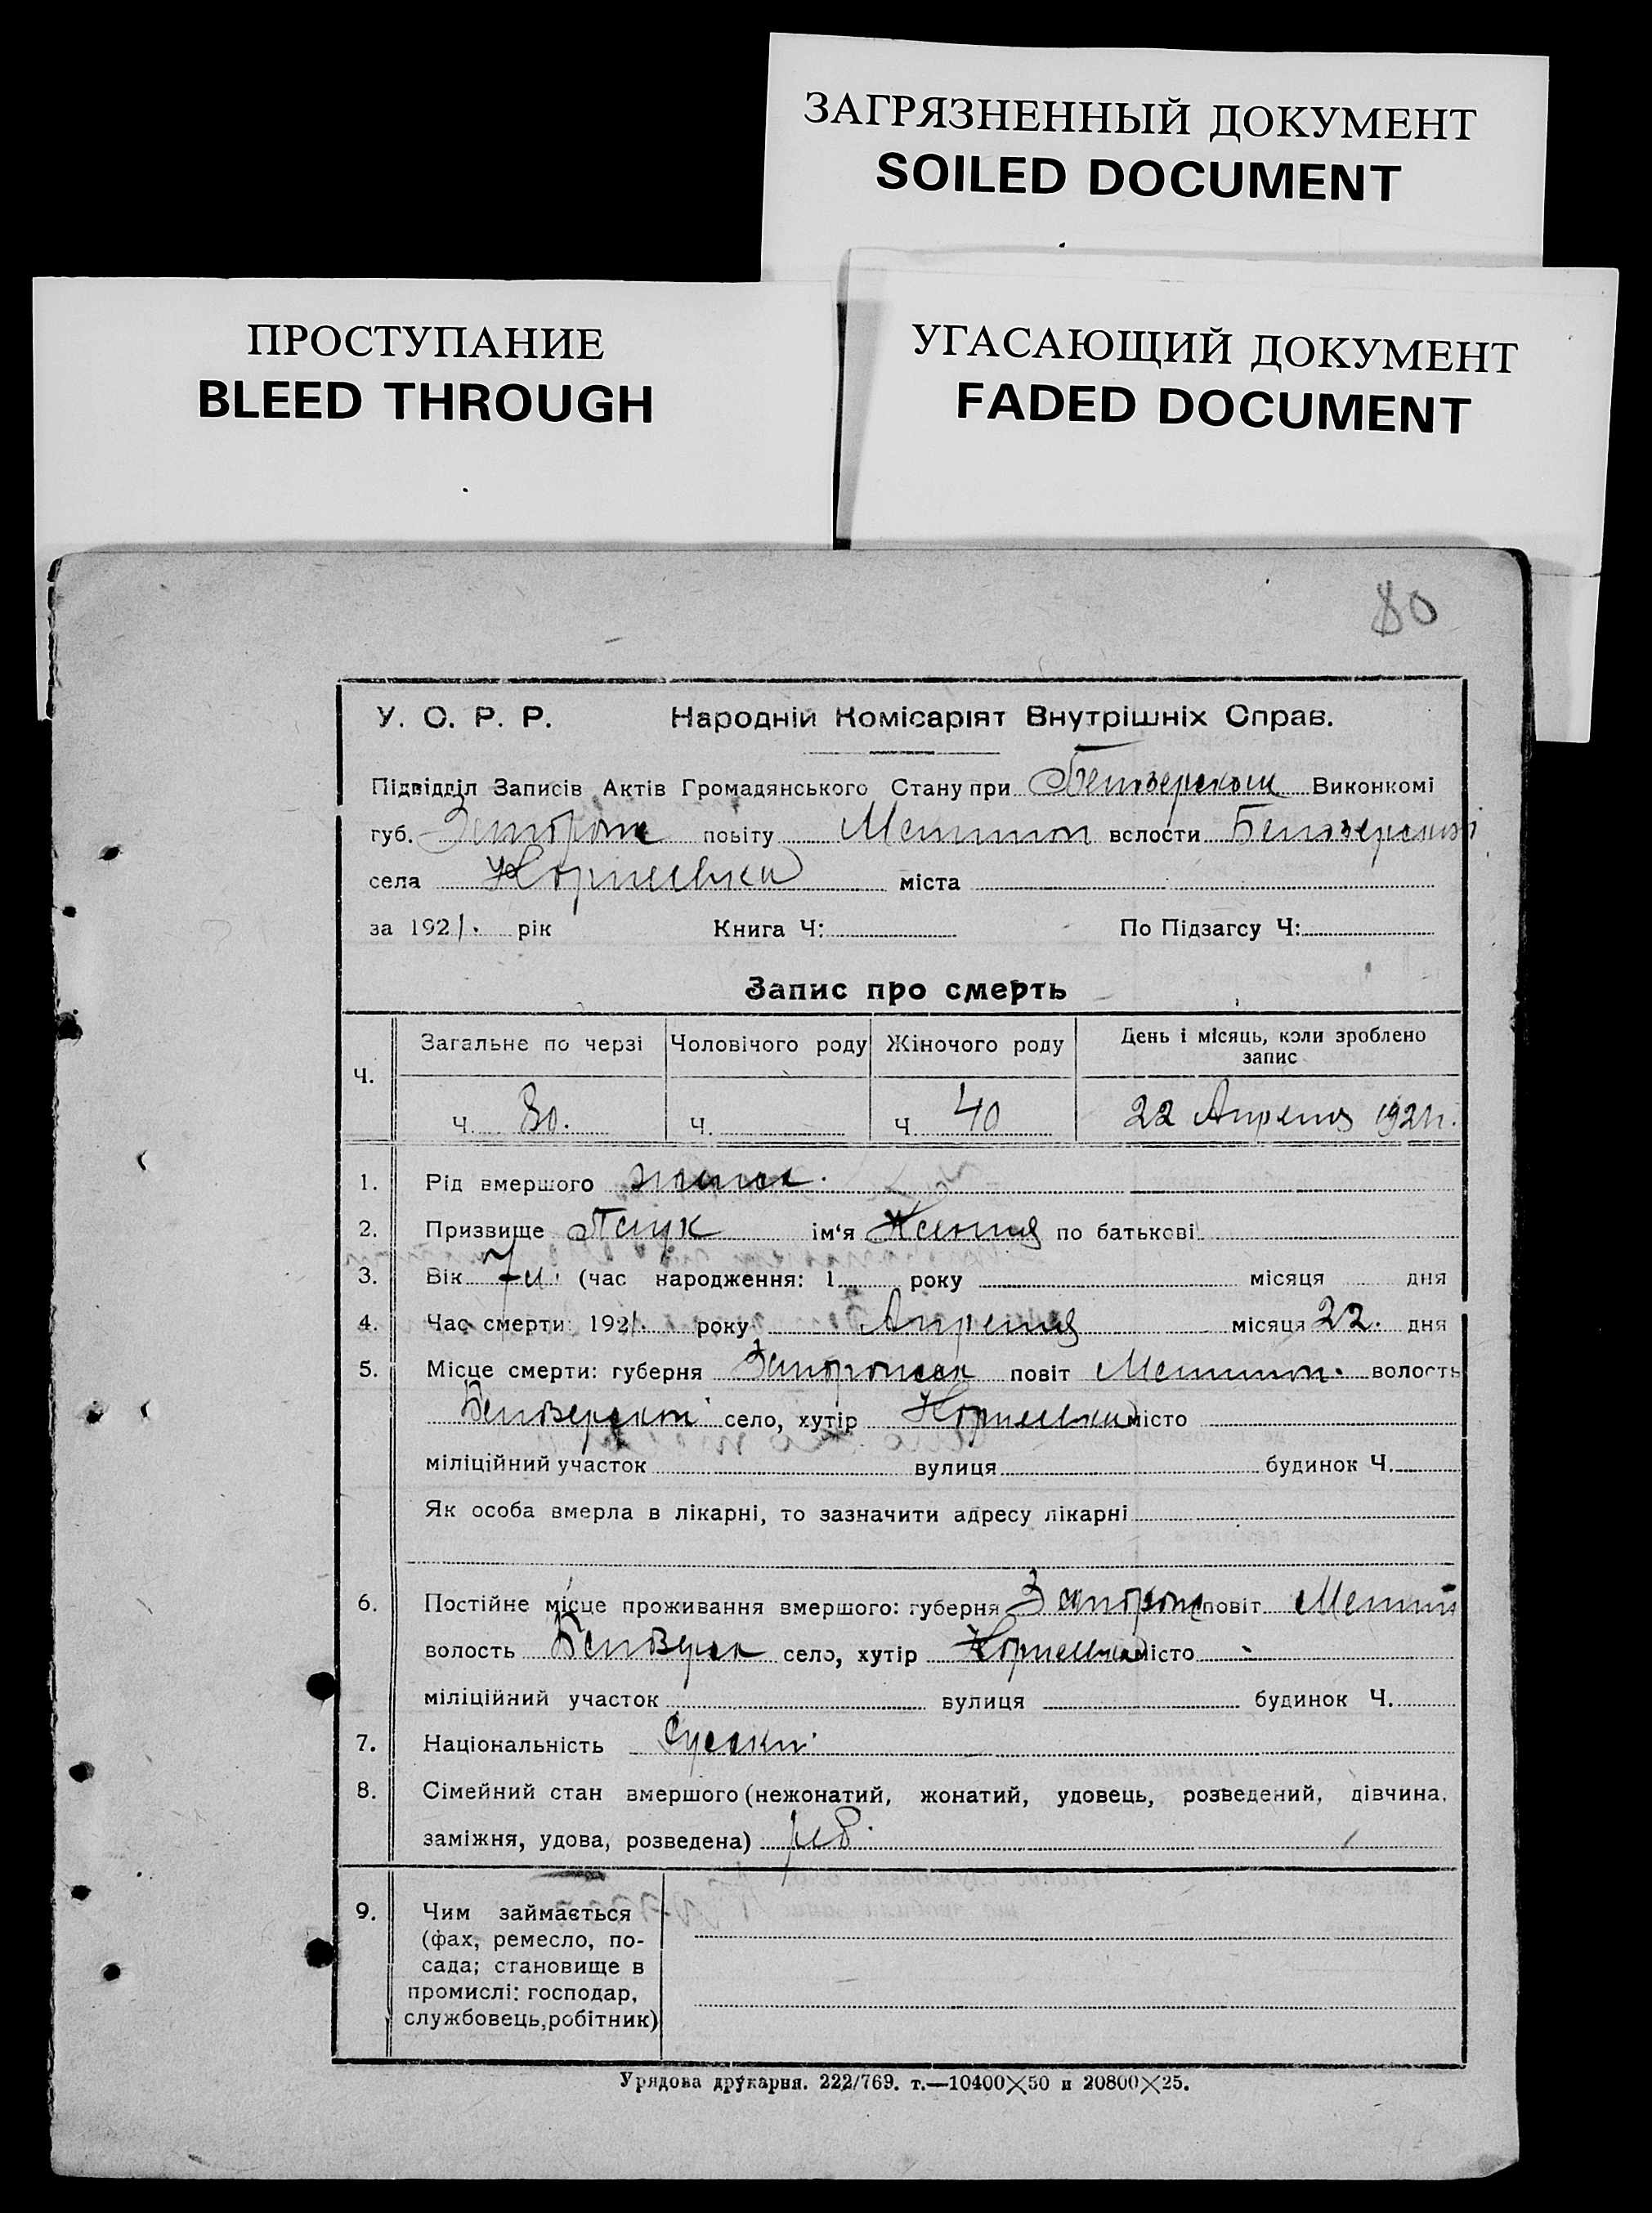 ЗАГРЯЗНЕННЫЙ ДОКУМЕНТ
SOILED DOCUMENT
ПРОСТУПАНИЕ
BLEED THROUGH
УГАСАЮЩИЙ ДОКУМЕНТ
FADED DOCUMENT
80
У. С. Р. Р. Народній Комісаріят Внутрішніх Справ.
Підвідділ Записів Актів Громадянського Стану при Белозерском Виконкомі
губ. Запорож повіту Мелитоп волости Белозерской
села Корнеевка міста
за 1921. рік Книга Ч: По Підзагсу Ч:
Запис про смерть
Ч. Загальне по черзі Чоловічого роду Жіночого роду День і місяць, коли зроблено запис
Ч. 80. Ч. Ч. 40 22 Апреля 1921г.
1. Рід вмершого женск.
2. Призвище ім'я Ксения по батькові
3. Вік (час народження: 1 року місяця дня
4. Час смерти: 1921. року Апреля місяця 22. дня
5. Місце смерти: губерня Запорожск повіт Мелитоп. волость
Белозерской село, хутір Корнеевка місто
міліційний участок вулиця будинок Ч.
Як особа вмерла в лікарні, то зазначити адресу лікарні
6. Постійне місце проживання вмершого: губерня Запорож повіт Мелит
волость Белозерск село, хутір Корнеевка місто
міліційний участок вулиця будинок Ч.
7. Національність Русски
8. Сімейний стан вмершого (нежонатий, жонатий, удовець, розведений, дівчина,
заміжня, удова, розведена) реб.
9. Чим займається
(фах, ремесло, по-
сада; становище в
промислі: господар,
службовець, робітник)
Урядова друкарня. 222/769. т.—10400×50 и 20800×25.